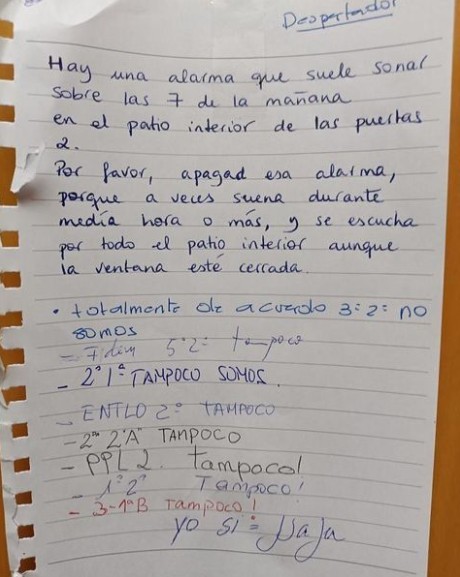 Despertador
Hay una alarma que suele sonar
sobre las 7 de la mañana
en el patio interior de las puertas
2.
Por favor, apagad esa alarma,
porque a veces suena durante
media hora o más, y se escucha
por todo el patio interior aunque
la ventana esté cerrada.
• totalmente de acuerdo 3º 2º no
somos
- Idem 5º 2º tampoco
- 2º 1ª TAMPOCO SOMOS.
- ENTLO 2º TAMPOCO
- 2º 2ª A" TAMPOCO
- PPL 2. tampoco!
- 1º 2ª Tampoco!
- 3-1ºB Tampoco!
yo si = JaJa